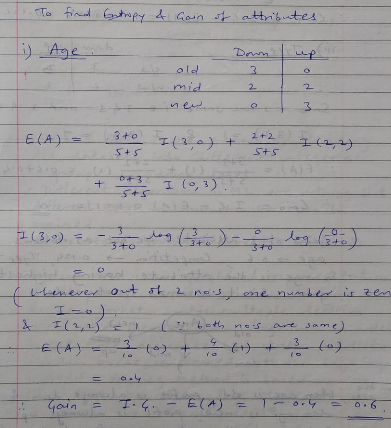 To find Entropy & Gain of attributes
i) Age Down | up
old 3 0
mid 2 2
new 0 3
E(A) = 3+0/5+5 I(3,0) + 2+2/5+5 I(2,2)
+ 0+3/5+5 I(0,3).
I(3,0) = - 3/3+0 log (3/3+0) - 0/3+0 log (0/3+0)
= 0
(Whenever out of 2 no's, one number is zero
I=0)
& I(2,2) = 1 (∵ both no's are same)
∴ E(A) = 3/10 (0) + 4/10 (1) + 3/10 (0)
= 0.4
∴ Gain = I.G. - E(A) = 1 - 0.4 = 0.6